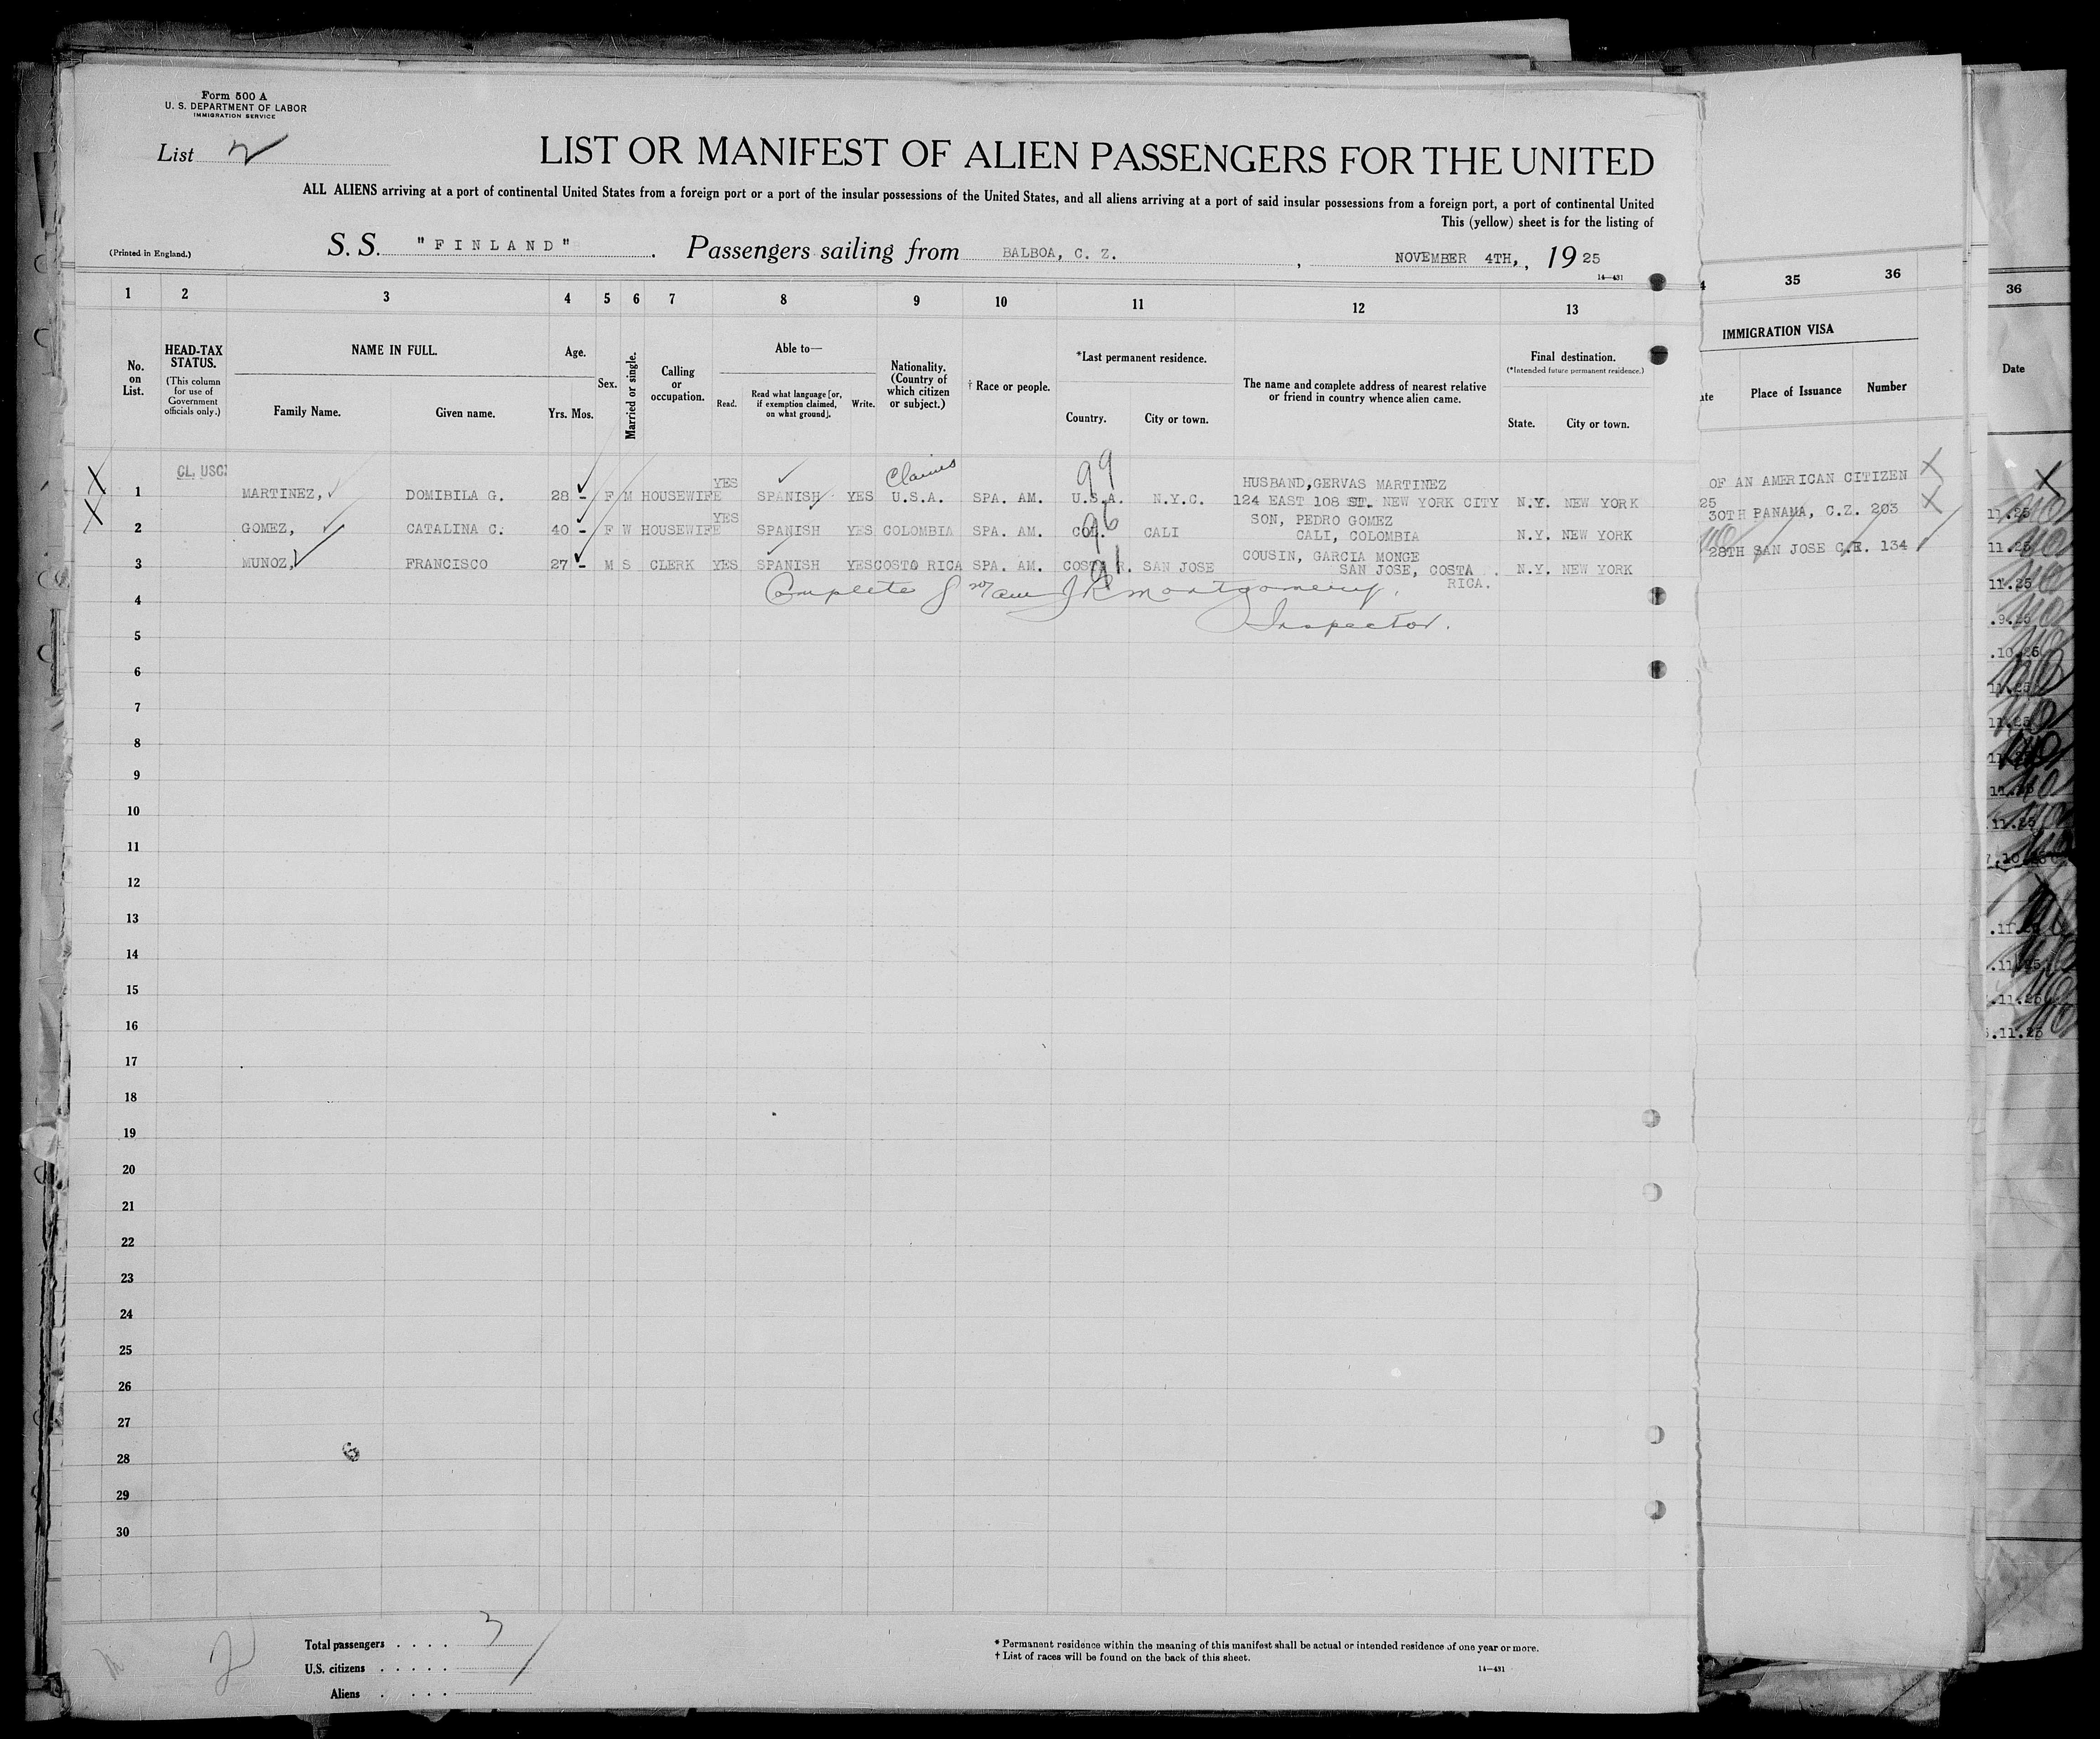 Form 500 A
U. S. DEPARTMENT OF LABOR
IMMIGRATION SERVICE
List 2
LIST OR MANIFEST OF ALIEN PASSENGERS FOR THE UNITED
ALL ALIENS arriving at a port of continental United States from a foreign port or a port of the insular possessions of the United States, and all aliens arriving at a port of said insular possessions from a foreign port, a port of continental United
This (yellow) sheet is for the listing of
(Printed in England.) S. S. "FINLAND" . Passengers sailing from BALBOA, C. Z. , NOVEMBER 4TH, , 19 25
14—431
1 2 3 4 5 6 7 8 9 10 11 12 13
No. on List.
HEAD-TAX STATUS.
(This column for use of Government officials only.)
NAME IN FULL.
Family Name. Given name.
Age.
Yrs. Mos.
Sex.
Married or single.
Calling or occupation.
Able to—
Read. Read what language [or, if exemption claimed, on what ground]. Write.
Nationality. (Country of which citizen or subject.)
† Race or people.
*Last permanent residence.
Country. City or town.
The name and complete address of nearest relative or friend in country whence alien came.
Final destination.
(*Intended future permanent residence.)
State. City or town.
35 36
IMMIGRATION VISA
Place of Issuance Number
36
Date
CL. USC
Claims
99
X 1 MARTINEZ, DOMIBILA G. 28 - F M HOUSEWIFE YES SPANISH YES U.S.A. SPA. AM. U.S.A. N.Y.C. HUSBAND,GERVAS MARTINEZ
124 EAST 108 ST. NEW YORK CITY N.Y. NEW YORK
OF AN AMERICAN CITIZEN X
96
X 2 GOMEZ, CATALINA C. 40 - F W HOUSEWIFE YES SPANISH YES COLOMBIA SPA. AM. COL. CALI SON, PEDRO GOMEZ
CALI, COLOMBIA N.Y. NEW YORK
25
30TH PANAMA, C.Z. 203 X
91
3 MUNOZ, FRANCISCO 27 - M S CLERK YES SPANISH YES COSTO RICA SPA. AM. COSTA R. SAN JOSE COUSIN, GARCIA MONGE
SAN JOSE, COSTA RICA. N.Y. NEW YORK
28TH SAN JOSE C.R. 134
Complete J R Montgomery,
Inspector.
4
5
6
7
8
9
10
11
12
13
14
15
16
17
18
19
20
21
22
23
24
25
26
27
28
29
30
2
Total passengers . . . . 3
U.S. citizens . . . . .
Aliens . . . .
* Permanent residence within the meaning of this manifest shall be actual or intended residence of one year or more.
† List of races will be found on the back of this sheet.
14—431